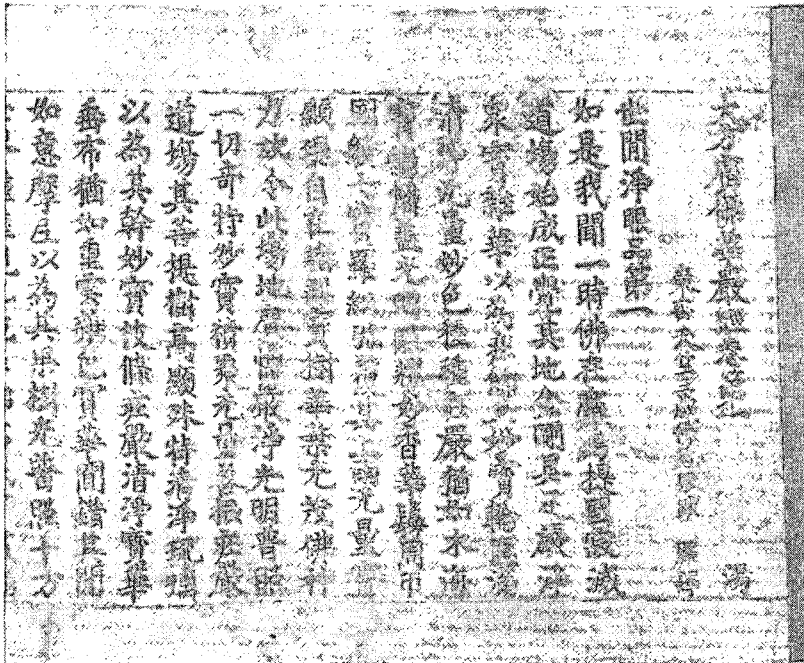 大方廣佛華嚴經卷第一 湯
世間淨眼品第一
如是我聞一時佛在摩竭提國寂滅
道場始成正覺其地金剛具足嚴淨
衆寶雜華以為莊飾上妙寶輪圓滿
清淨无量妙色種種莊嚴猶如大海
寶幢幡蓋光明照耀妙香華鬘周帀
圍繞七寶羅網弥覆其上雨无盡寶
顯現自在諸雜寶樹華葉光茂佛神
力故令此場地廣博嚴淨光明普照
一切奇特妙寶積聚无量善根莊嚴
道場其菩提樹高顯殊特清淨琉璃
以為其幹妙寶枝條莊嚴清淨寶葉
垂布猶如重雲雜色寶華間錯其間
如意摩尼以為其果樹光普照十方